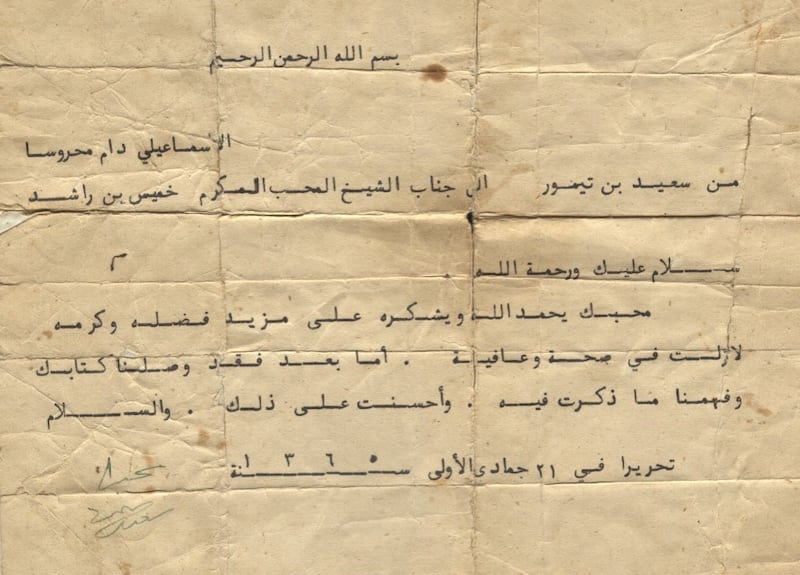 بسم الله الرحمن الرحيم
الأسماعيلي دام محروسا
من سعيد بن تيمور الى جناب الشيخ المحب المكرم خميس بن راشد
سلام عليك ورحمة الله .
محبك يحمد الله ويشكره على مزيد فضله وكرمه
لازلت في صحة وعافية . أما بعد فقد وصلنا كتابك
وفهمنا ما ذكرت فيه . وأحسنت على ذلك . والسلام
تحريرا في ٢١ جمادى الأولى سنة ١٣٦٥